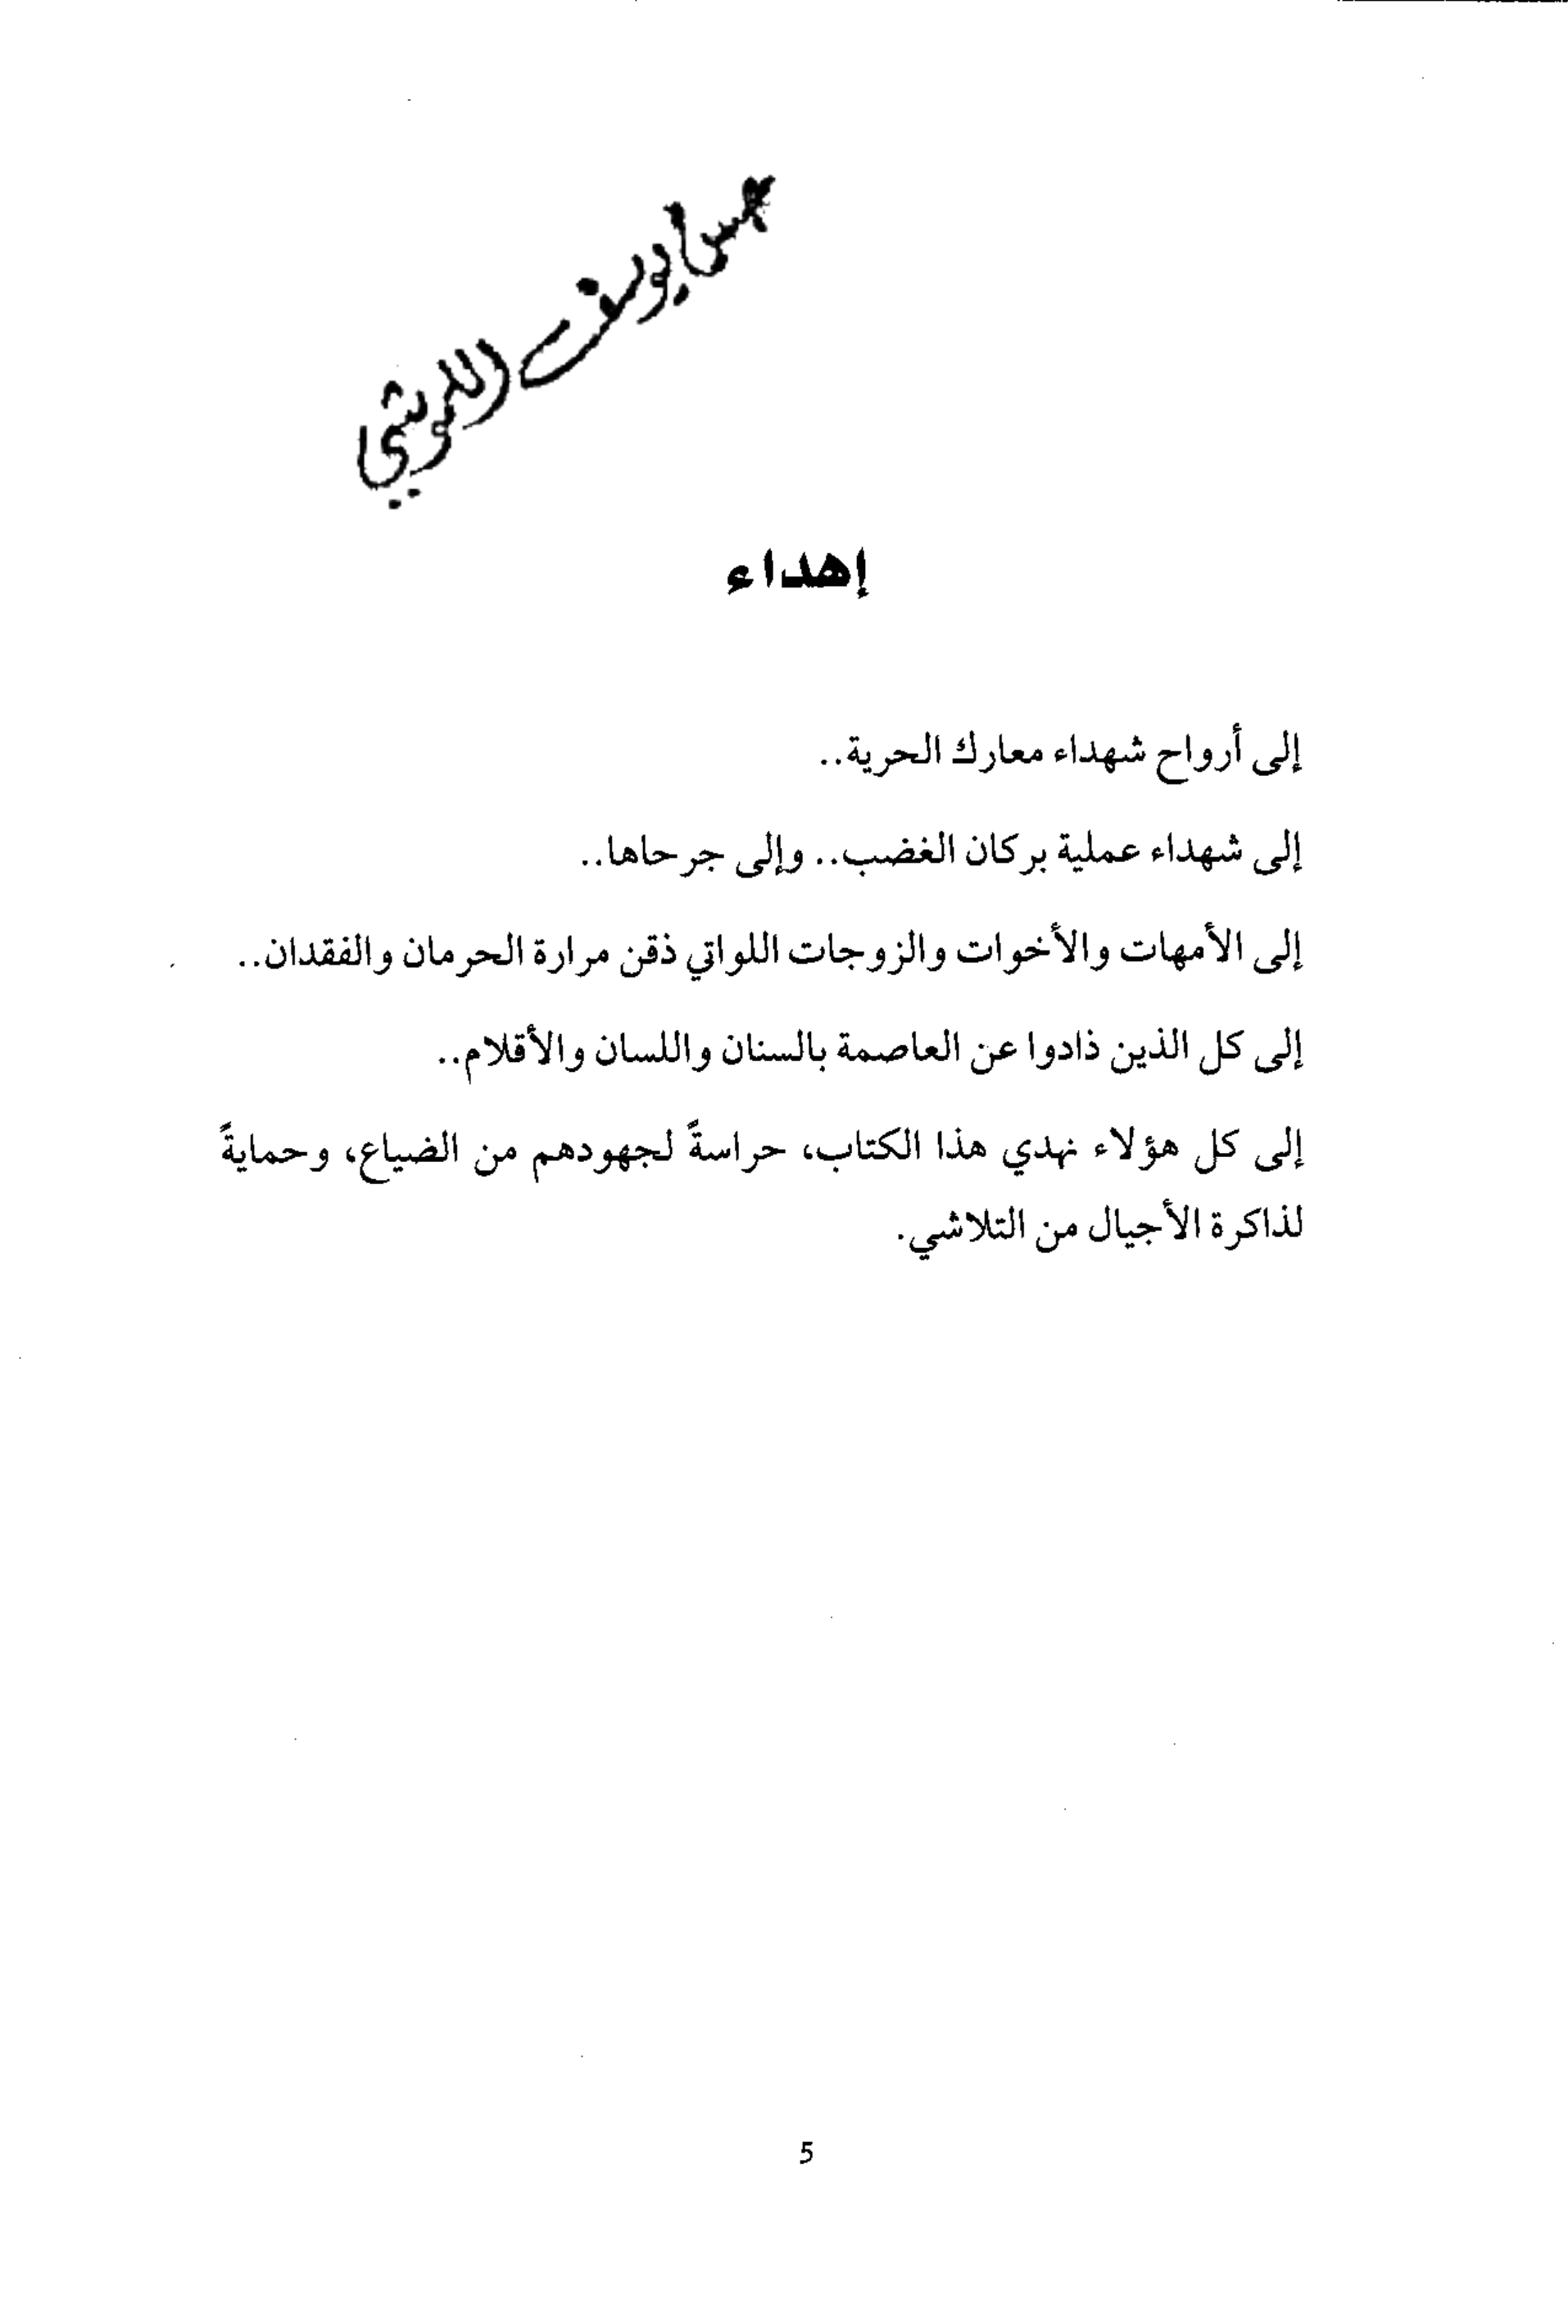 يوسف
إهداء
إلى أرواح شهداء معارك الحرية..
إلى شهداء عملية بركان الغضب.. وإلى جرحاها..
إلى الأمهات والأخوات والزوجات اللواتي ذقن مرارة الحرمان والفقدان..
إلى كل الذين ذادوا عن العاصمة بالسنان واللسان والأقلام..
إلى كل هؤلاء نهدي هذا الكتاب، حراسةً لجهودهم من الضياع، وحمايةً
لذاكرة الأجيال من التلاشي.
5